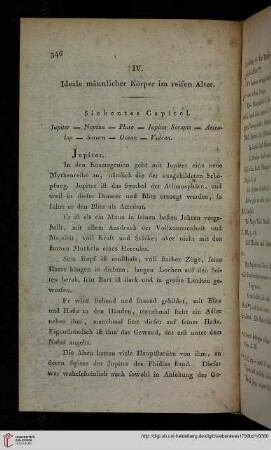 346
IV.
Ideale männlicher Körper im reifen Alter.
Siebentes Capitel.
Jupiter — Neptun — Pluto — Jupiter Serapis — Aescu-
lap — Saturn — Ocean — Vulcan.
Jupiter.
In den Kosmogenien geht mit Jupiter eine neue
Mythenreihe an, nämlich die der ausgebildeten Schö-
pfung. Jupiter ist das Symbol der Athmosphäre, und
weil in dieser Donner und Blitz erzeugt werden, so
führt er den Blitz als Attribut.
Er ist als ein Mann in seinen besten Jahren vorge-
stellt, mit allem Ausdruck der Vollkommenheit und
Majestät, voll Kraft und Stärke; aber nicht mit den
Muskeln eines Hercules.
Sein Kopf ist ernsthaft, voll starker Züge, seine
Haare hängen in dichten, langen Locken auf den Sei-
ten herab, sein Bart ist dick und in große Locken ge-
worfen.
Er wird stehend und sitzend gebildet, mit Blitz
und Hasta in den Händen, manchmal steht ein Adler
neben ihm, manchmal sitzt dieser auf seiner Hasta.
Eigenthümlich ist ihm das Gewand, das erst unter dem
Nabel angeht.
Die Alten hatten viele Hauptstatüen von ihm, an
deren Spitze der Jupiter des Phidias stand. Dieser
war wahrscheinlich auch sowohl in Anlehung der Ge-
UNIVERSITÄTS-
BIBLIOTHEK
HEIDELBERG